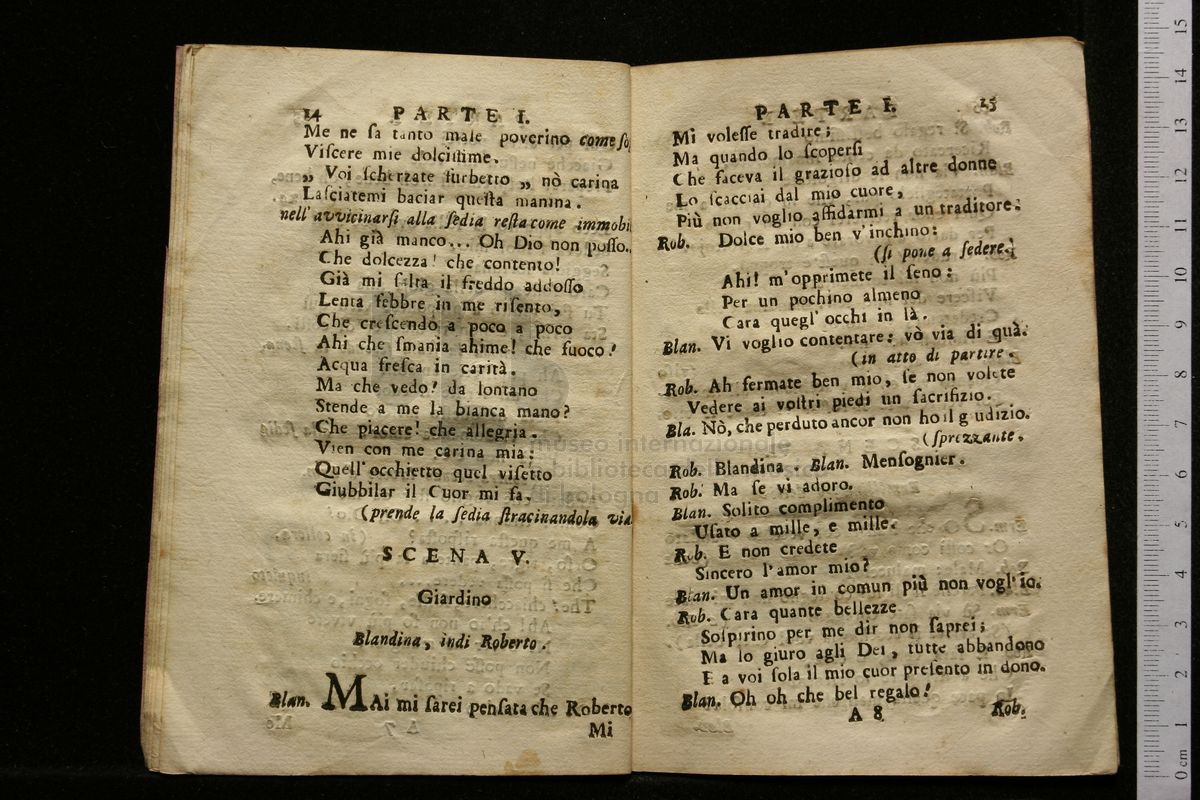 14 PARTE I.
Me ne ſa tanto male poverino come ſo
Viſcere mie dolciſſime.
„ Voi ſcherzate furbetto „ nò carina
Laſciatemi baciar queſta manina.
nell'avvicinarſi alla ſedia reſta come immobi
Ahi già manco... Oh Dio non poſſo..
Che dolcezza! che contento!
Già mi ſalta il freddo addoſſo
Lenta febbre in me riſento,
Che creſcendo a poco a poco
Ahi che ſmania ahime! che fuoco!
Acqua freſca in carità.
Ma che vedo! da lontano
Stende a me la bianca mano?
Che piacere! che allegria.
Vien con me carina mia:
Quell'occhietto quel viſetto
Giubbilar il Cuor mi fa.
(prende la ſedia ſtracinandola via
SCENA V.
Giardino
Blandina, indi Roberto.
Blan. MAi mi ſarei penſata che Roberto
Mi
PARTE I. 15
Mi voleſſe tradire;
Ma quando lo ſcoperſi
Che faceva il grazioſo ad altre donne
Lo ſcacciai dal mio cuore,
Più non voglio affidarmi a un traditore.
Rob. Dolce mio ben v'inchino:
(ſi pone a ſedere.
Ahi! m'opprimete il ſeno:
Per un pochino almeno
Cara quegl' occhi in là.
Blan. Vi voglio contentare: vò via di quà.
(in atto di partire.
Rob. Ah fermate ben mio, ſe non volete
Vedere ai voſtri piedi un ſacrifizio.
Bla. Nò, che perduto ancor non ho il g udizio.
(ſprezzante.
Rob. Blandina. Blan. Menſognier.
Rob. Ma ſe vi adoro.
Blan. Solito complimento
Uſato a mille, e mille.
Rob. E non credete
Sincero l'amor mio?
Blan. Un amor in comun più non vogl'io.
Rob. Cara quante bellezze
Soſpirino per me dir non ſaprei;
Ma lo giuro agli Dei, tutte abbandono
E a voi ſola il mio cuor preſento in dono.
Blan. Oh oh che bel regalo!
A 8 Rob.
museo internazionale
biblioteca della
di bologna
15
14
13
12
11
10
9
8
7
6
5
4
3
2
1
0 cm